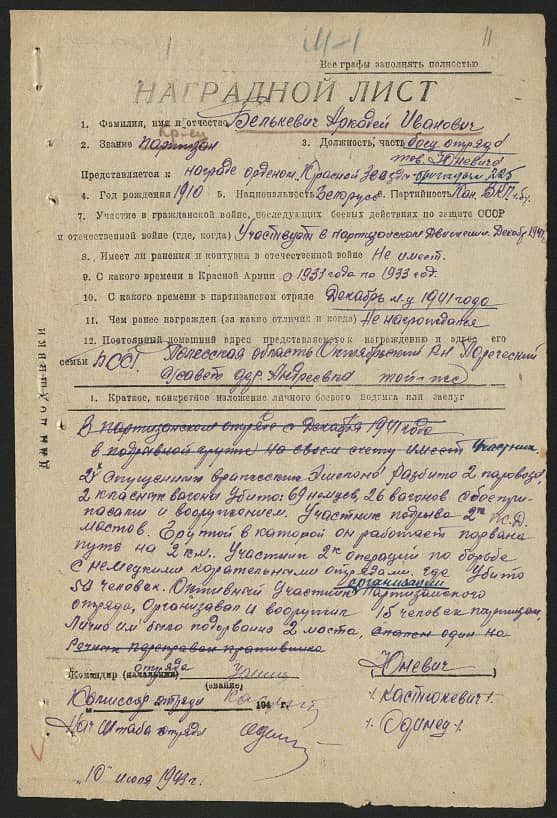 11
М-1
Все графы заполнять полностью
НАГРАДНОЙ ЛИСТ
1. Фамилия, имя и отчество Белькевич Аркадей Иванович
2. Звание партизан 3. Должность, часть боец отряда
тов. Юневича
Представляется к награде орденом „Красной Звезды“ бригады 225
4. Год рождения 1910 5. Национальность Белорусс 6. Партийность Кан. ВКП(б)
7. Участие в гражданской войне, последующих боевых действиях по защите СССР
и отечественной войне (где, когда) Участвует в партизанском движении. Декабрь 1941
8. Имеет ли ранения и контузии в отечественной войне Не имеет.
9. С какого времени в Красной Армии с 1931 года по 1933 год.
10. С какого времени в партизанском отряде Декабрь м-ц 1941 года
11. Чем ранее награжден (за какие отличия и когда) Не награждался
12. Постоянный домашний адрес представляемого к награждению и адрес его
семьи БССР Полесская область Октябрьский р-н Порečский
с/совет дер. Андреевка той-же
ДЛЯ ПОДШИВКИ
1. Краткое, конкретное изложение личного боевого подвига или заслуг
В партизанском отряде с Декабря 1941 года
в подрывной группе на своем счету имеет Участник
2х спущенных вражеских эшелона Разбито 2 паровоза,
2 класных вагоны Убито: 69 немцев, 26 вагонов с боепри-
пасами и вооружением. Участник подрыва 2х Ж.Д.
мостов. Группой в которой он работает порвано
путе на 2 км. Участник 2х операций по борьбе
с немецкими карательными отрядами, где Убито
54 человек. Активный Участник организации Партизанского
отряда, Организовал и вооружил 15 человек партизан,
Лично им было подорванно 2 моста, один на
Командир (начальник) отряда Юневич
(звание)
Комиссар отряда 194 г. /Кастюкевич/
Нач. Штаба отряда /Одинец/
"10" июля 1943 г.